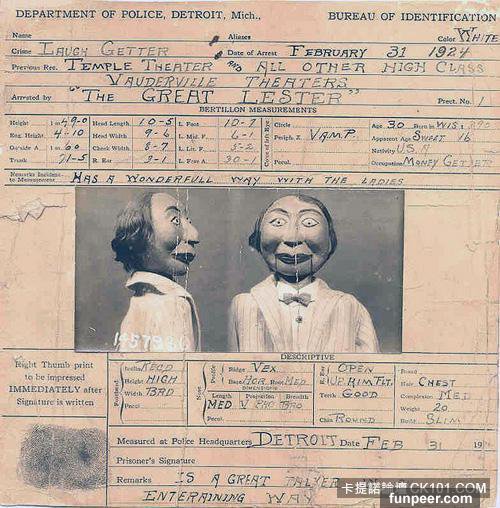 DEPARTMENT OF POLICE, DETROIT, Mich., BUREAU OF IDENTIFICATION
Name Aliases Color WHITE
Crime LAUGH GETTER Date of Arrest FEBRUARY 31 1924
Previous Rec. TEMPLE THEATER AND ALL OTHER HIGH CLASS
VAUDERVILLE THEATERS
Arrested by "THE GREAT LESTER" Prect. No. 1
BERTILLON MEASUREMENTS
Height 1 m 49-0 Head Length 10-5 L. Foot 10-7 Circle Age 30 Born in WIS
Eng. Height 4-10 Head Width 9-6 L. Mid. F. 6-1 Periph. Z VAMP. Apparent Age SWEET 16
Outs'de A 1 m 60 Cheek Width 8-7 L. Lit. F. 5-2 Nativity U.S.A
Trunk 71-5 R. Ear 9-1 L. Fore A. 30-1 Pecul. Occupation MONEY GETTER
Remarks Incident to Measurement HAS A WONDERFULL WAY WITH THE LADIES
DESCRIPTIVE
Right Thumb print
to be impressed
IMMEDIATELY after
Signature is written
Height HIGH
Width BRD
Pecul.
Ridge VEX
Base HOR. Root MED
DIMENSIONS
Length Projection Breadth
MED
Pecul.
OPEN
UP. RIM FLT.
Teeth GOOD
Chin ROUND
Beard
Hair CHEST
Complexion MED
Weight 20
Build SLIM
Measured at Police Headquarters DETROIT Date FEB 31 19
Prisoner's Signature
Remarks IS A GREAT TALKER
ENTERAINING WAY
卡提諾論壇 CK101.COM
funpeer.com